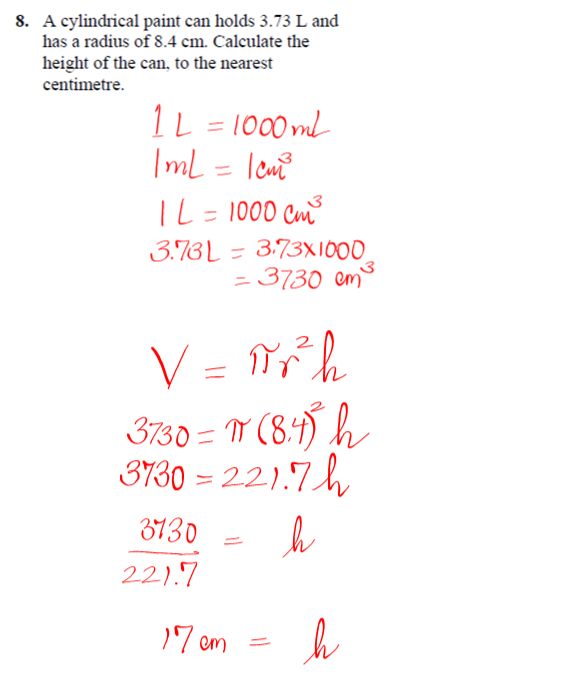 8. A cylindrical paint can holds 3.73 L and
has a radius of 8.4 cm. Calculate the
height of the can, to the nearest
centimetre.
1 L = 1000 mL
1 mL = 1 cm³
1 L = 1000 cm³
3.73 L = 3.73×1000
= 3730 cm³
V = πr²h
3730 = π (8.4)² h
3730 = 221.7 h
3730
= h
221.7
17 cm = h